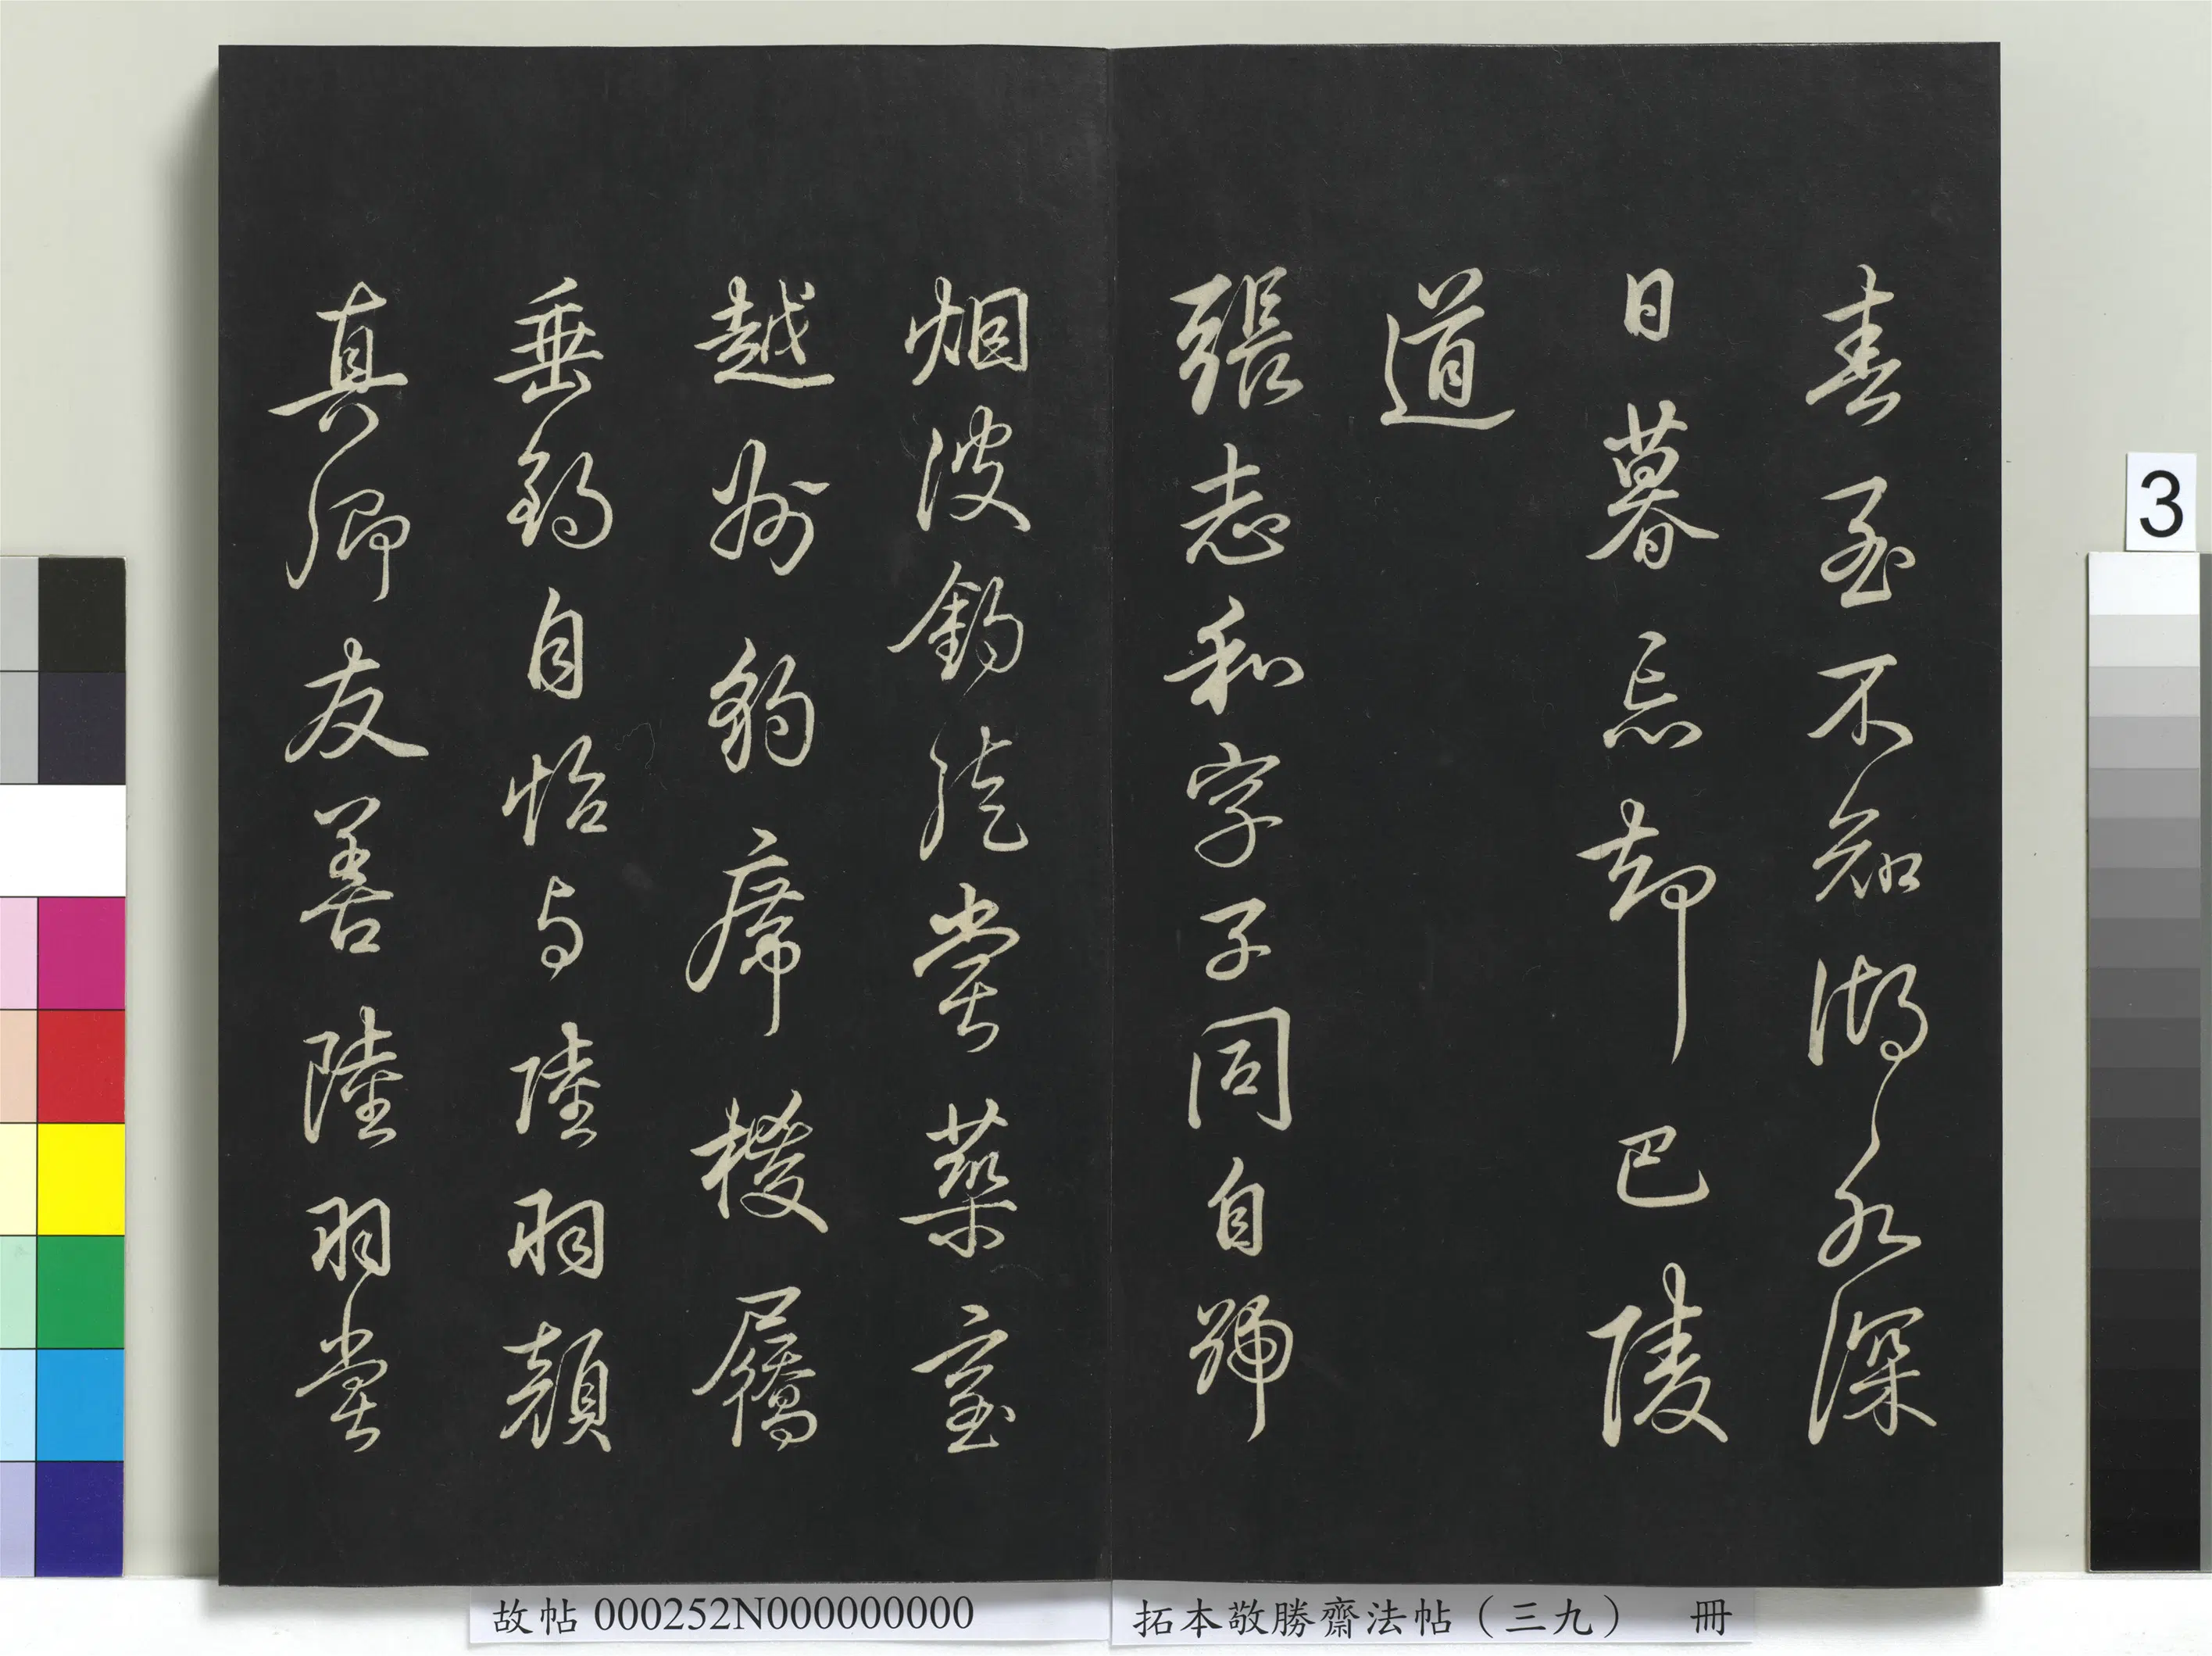 春至不知湖水深
日暮忘却巴陵
道
張志和字子同自號
烟波釣徒嘗築室
越州豹席椶屩
垂釣自怡与陸羽顏
真卿友善陸羽嘗
3
故帖 000252N000000000
拓本敬勝齋法帖（三九） 冊